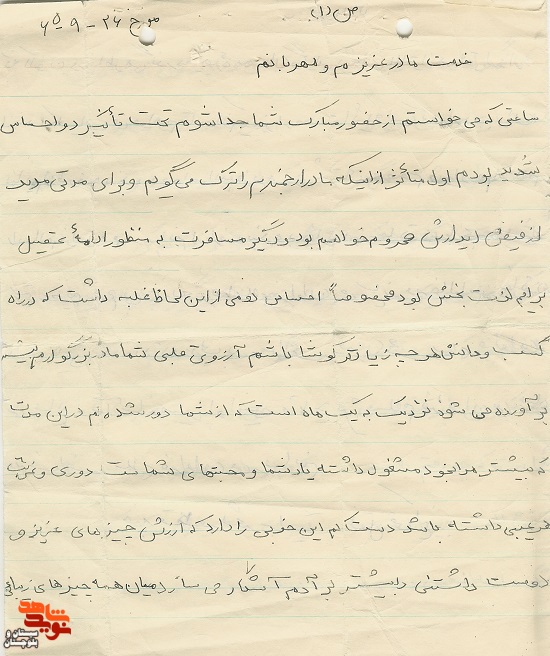 ص (۱)
مورخ ۲۶-۹-۶۵
خدمت مادر عزیزم و مهربانم
ساعتی که می خواستم از حضور مبارک شما جدا شوم تحت تأثیر دو احساس
شدید بودم اول متأثر از اینکه مادر ارجمندم را ترک می گویم و برای مدتی مدید
از فیض دیدارش محروم خواهم بود دیگر مسافرت به منظور ادامهٔ تحصیل
برایم لذت بخش بود مخصوصاً احساس دومی از این لحاظ غلبه داشت که در راه
کسب و دانش هر چه زیادتر کوشا باشم آرزوی قلبی شما مادر بزرگوارم بیشتر
بر آورده می شود نزدیک به یک ماه است که از شما دور شده ام در این مدت
که بیشتر مرا بخود مشغول داشته یاد شما و محبتهای شماست دوری و غربت
هر عیبی داشته باشد دست کم این خوبی را دارد که ارزش چیز های عزیز و
دوست داشتنی را بیشتر بر آدم آشکار می سازد میان همه چیزهای زیبائی
نوید شاهد
سیستان و بلوچستان